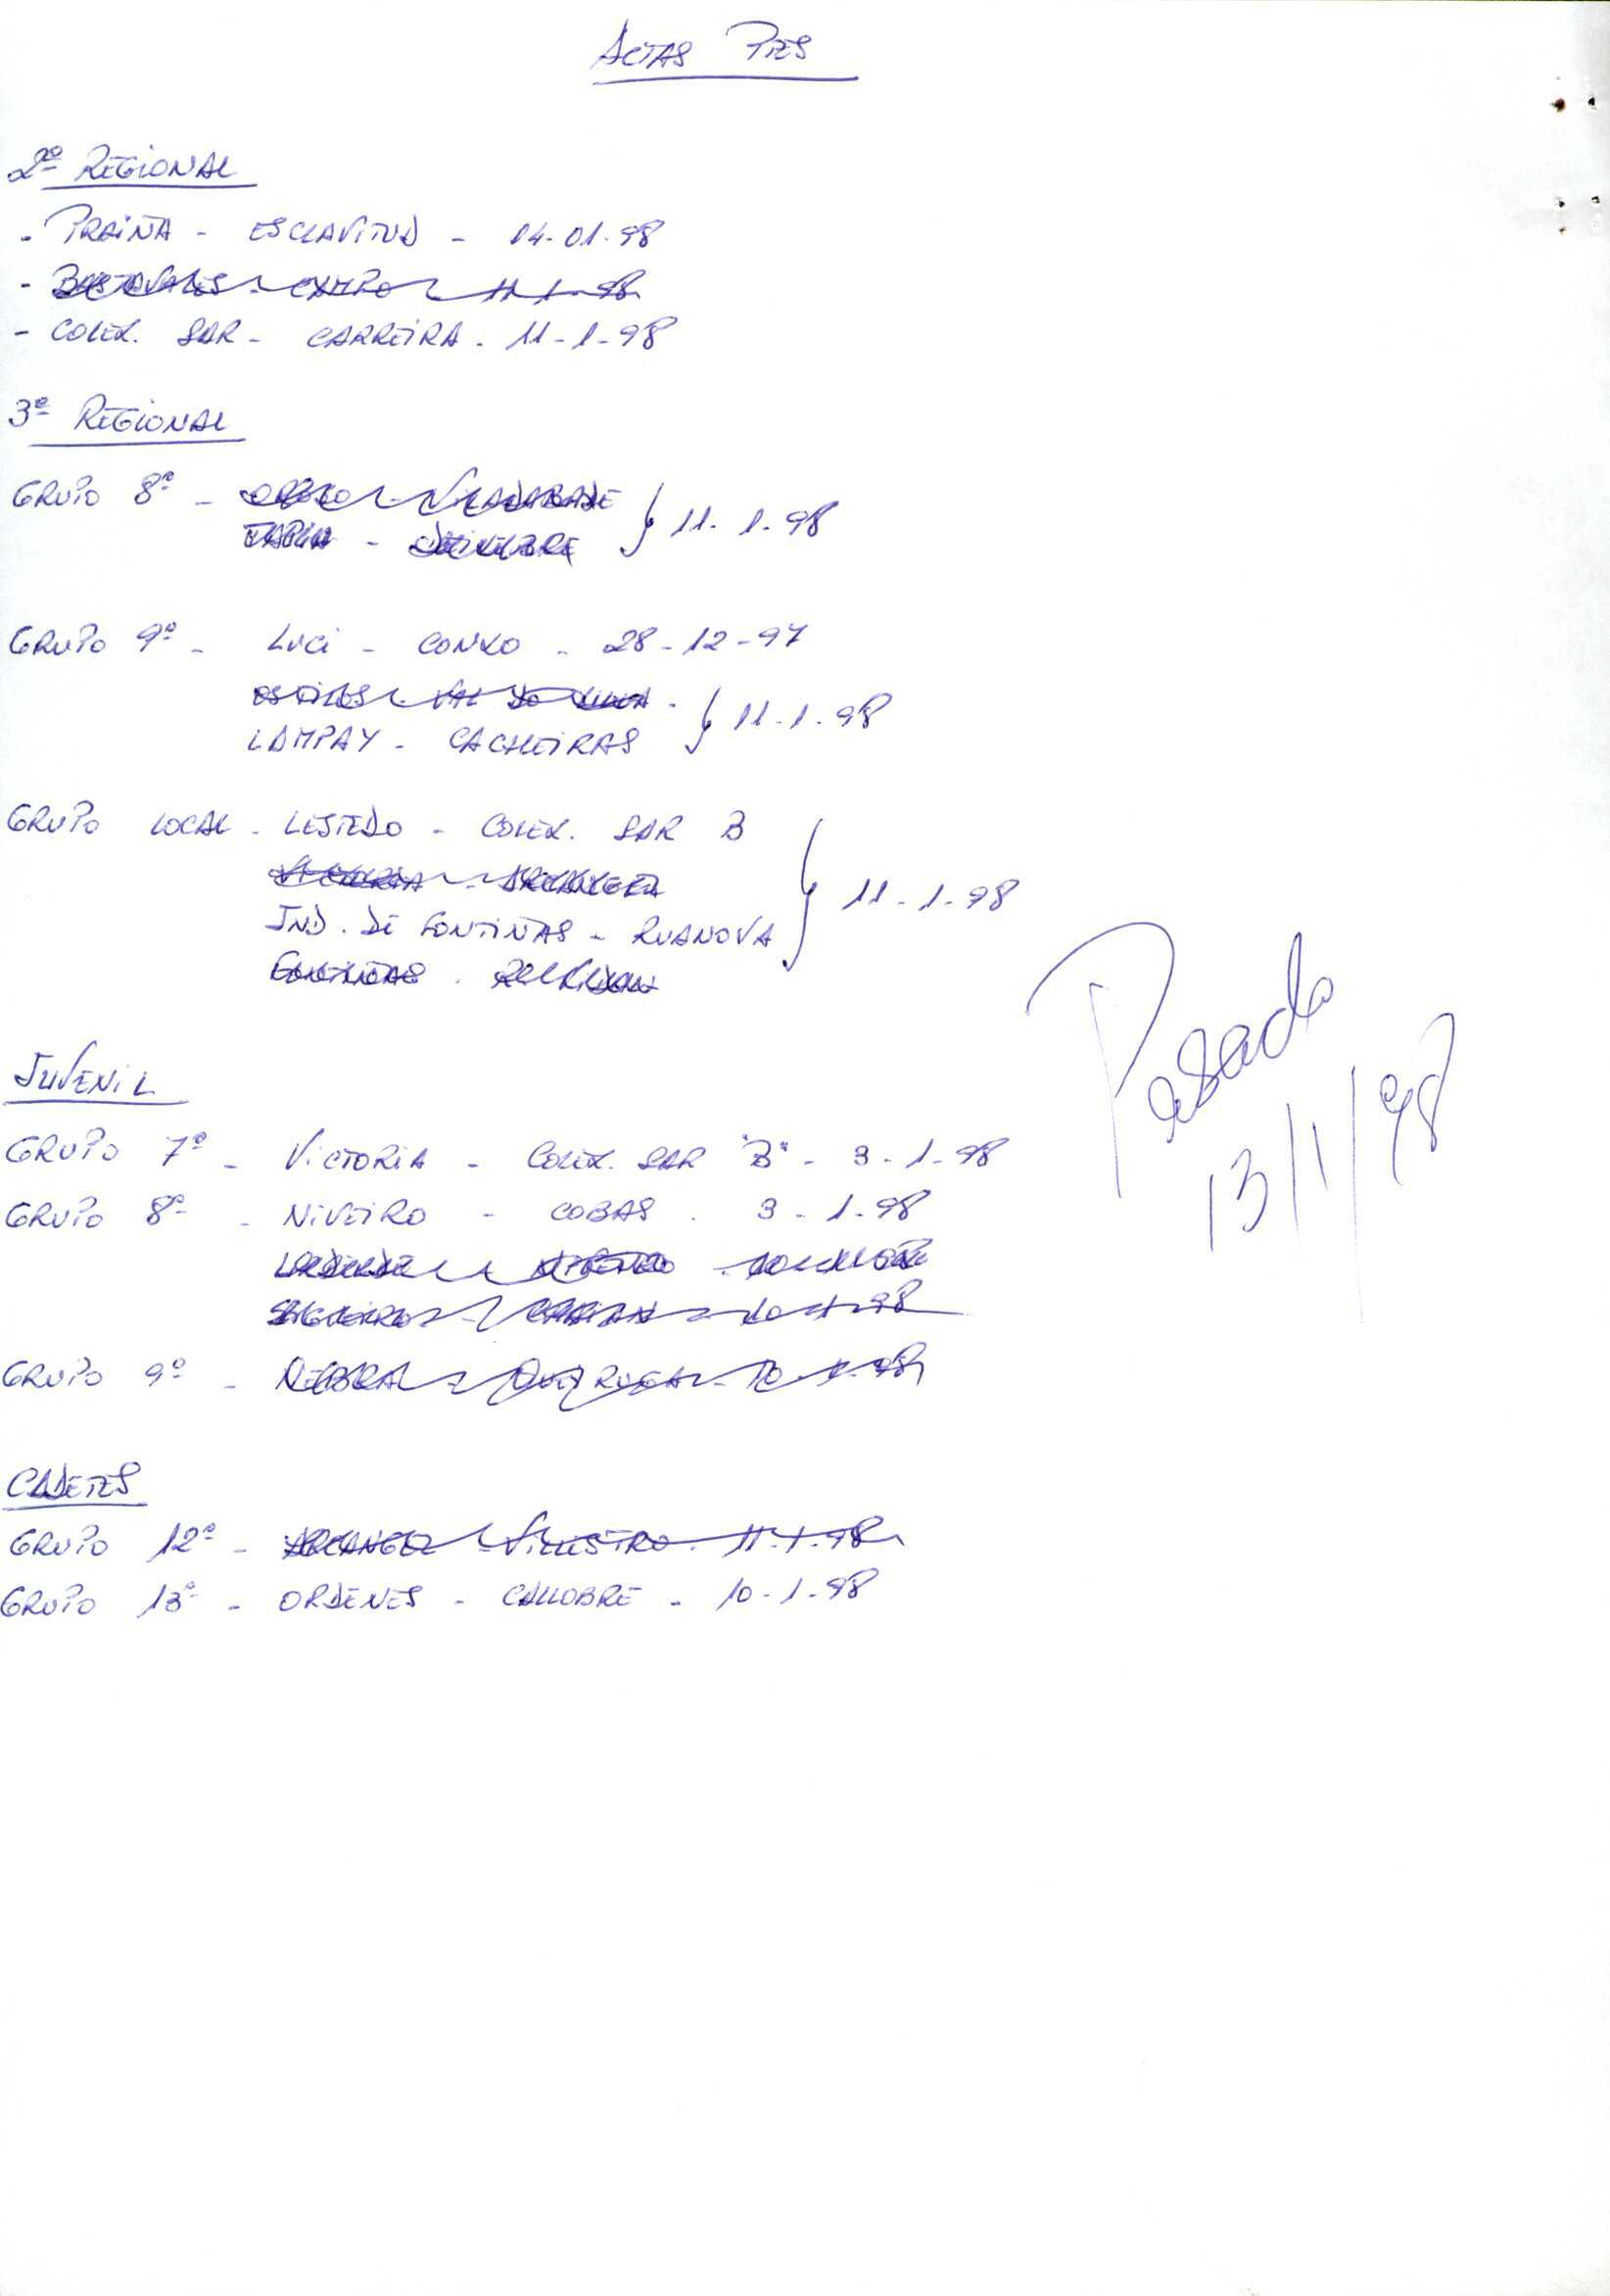 ACTAS PTES
2ª REGIONAL
- PRAIÑA - ESCLAVITUD - 14-01-98
- BUSTOVALES - CAMPO - 11-1-98
- COLEX. SAR - CARREIRA - 11-1-98
3ª REGIONAL
GRUPO 8º - VILADABADE
TAPIA - } 11-1-98
GRUPO 9º - LUCI - CONXO - 28-12-97
OS TILOS - VAL DO
LAMPAY - CACHEIRAS } 11-1-98
GRUPO LOCAL - LESTEDO - COLEX. SAR B
VICTORIA - ARCANGEL } 11-1-98
IND. DE FONTIÑAS - RUANOVA
FONTIÑAS -
JUVENIL
GRUPO 7º - VICTORIA - COLEX. SAR "B" - 3-1-98
GRUPO 8º - NIVEIRO - COBAS - 3-1-98
SIGUEIRO - - 10-1-98
GRUPO 9º - NEGREIRA - QUEIRUGA - 10-1-98
CADETES
GRUPO 12º - ARCANGEL - VILLESTRO - 11-1-98
GRUPO 13º - ORDENES - CALLOBRE - 10-1-98
Pasado
13/1/98